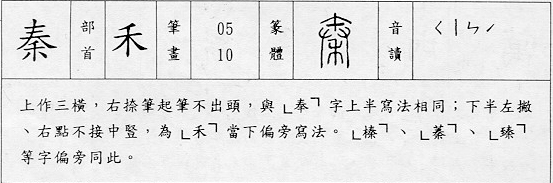 秦 部首 禾 筆畫 05 10 篆體 秦 音讀 ㄑㄧㄣˊ
上作三橫，右捺筆起筆不出頭，與「奉」字上半寫法相同；下半左撇
、右點不接中豎，為「禾」當下偏旁寫法。「榛」、「蓁」、「臻」
等字偏旁同此。